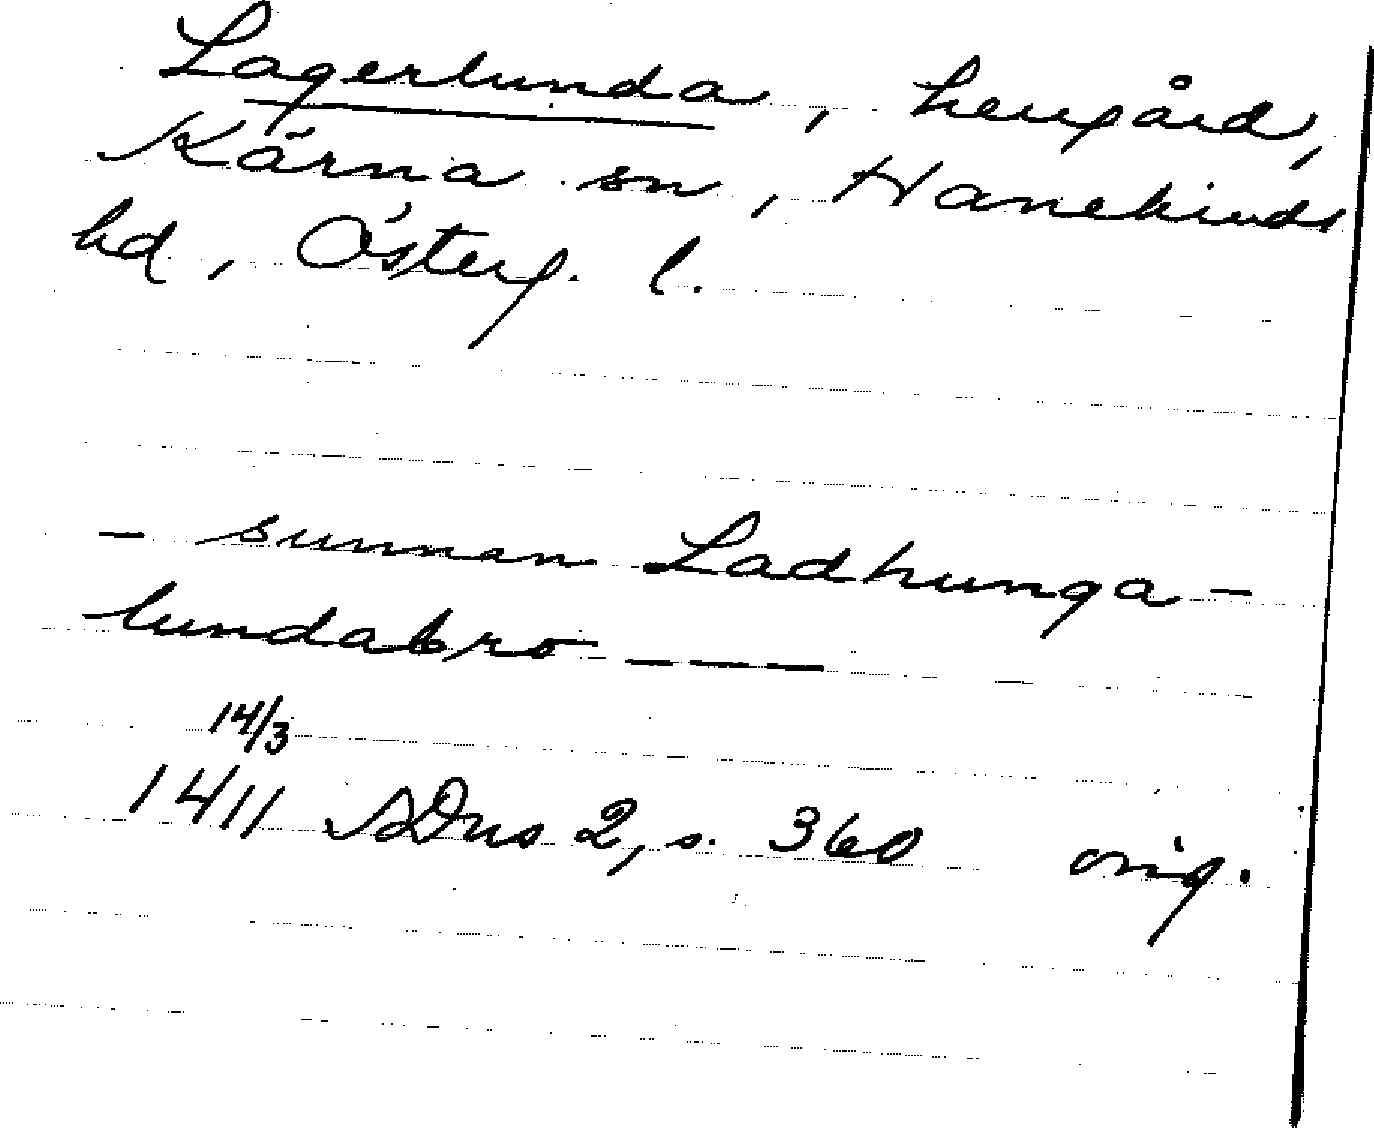 Lagerlunda, herrgård,
Kärna sn, Hanekinds
hd, Österg. l.
– sunnan Ladhunga-
lundabro – – –
14/3
1411 SDns 2, s. 360 orig.